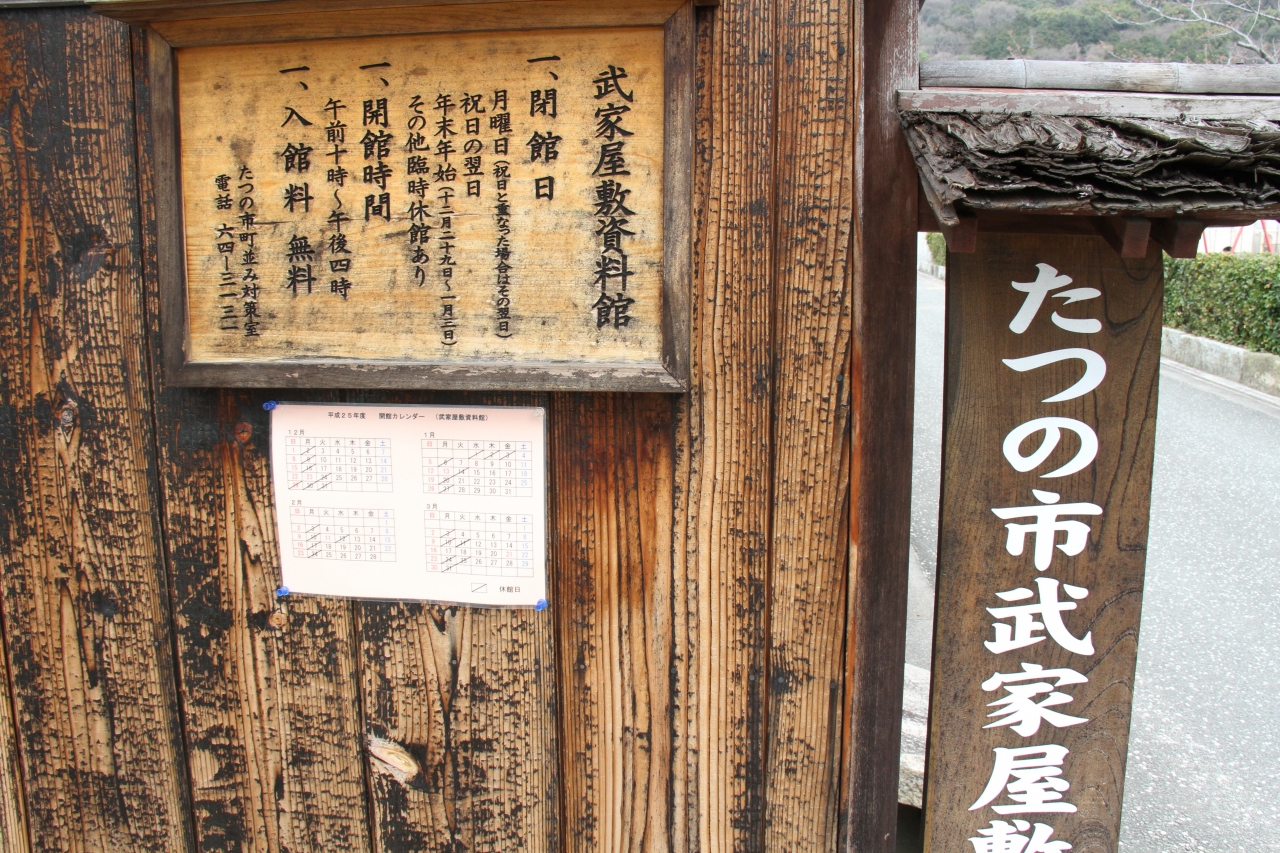 武家屋敷資料館
一、閉館日
月曜日(祝日と重なった場合はその翌日)
祝日の翌日
年末年始(十二月二十九日〜一月三日)
その他臨時休館あり
一、開館時間
午前十時〜午後四時
一、入館料 無料
たつの市町並み対策室
電話 六四ー三一三一
平成25年度 開館カレンダー (武家屋敷資料館)
12月
日 月 火 水 木 金 土
1月
日 月 火 水 木 金 土
2月
日 月 火 水 木 金 土
3月
日 月 火 水 木 金 土
休館日
たつの市武家屋敷